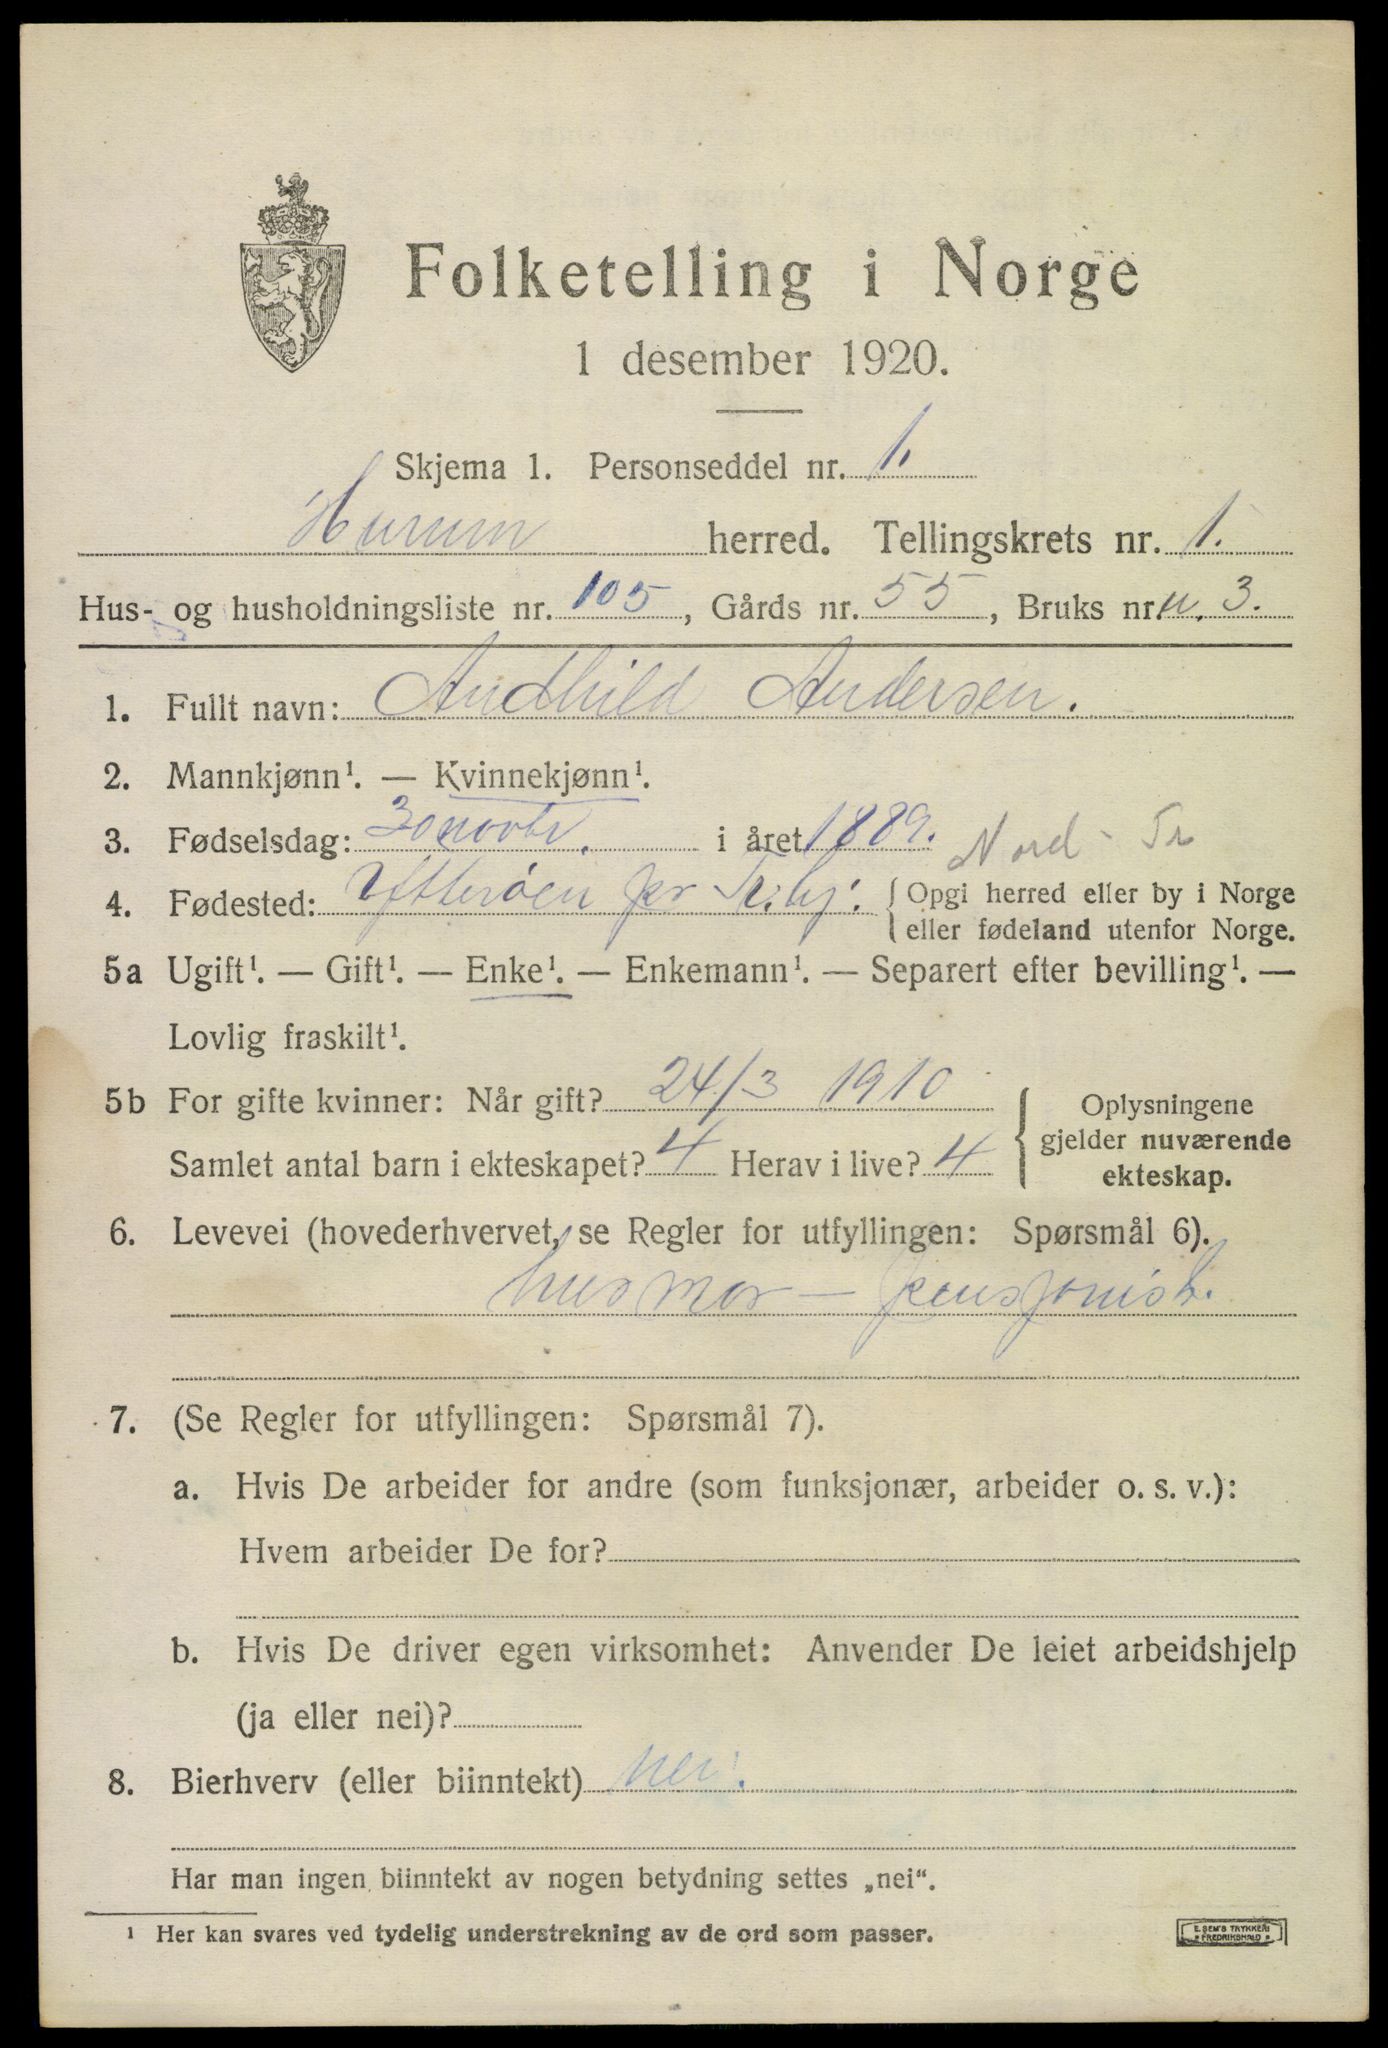 Folketelling i Norge
1 desember 1920.
Skjema 1. Personseddel nr. 1.
Hurum herred. Tellingskrets nr. 1.
Hus- og husholdningsliste nr. 105, Gårds nr. 55, Bruks nr. 3.
1. Fullt navn: Audhild Andersen.
2. Mannkjønn¹. — Kvinnekjønn¹.
3. Fødselsdag: 30 novbr. i året 1889. Nord-Tr
4. Fødested: Ytterøen pr Tr.hj. Opgi herred eller by i Norge
eller fødeland utenfor Norge.
5a Ugift¹. — Gift¹. — Enke¹. — Enkemann¹. — Separert efter bevilling¹. —
Lovlig fraskilt¹.
5b For gifte kvinner: Når gift? 24/3 1910
Samlet antal barn i ekteskapet? 4 Herav i live? 4
Oplysningene
gjelder nuværende
ekteskap.
6. Levevei (hovederhvervet, se Regler for utfyllingen: Spørsmål 6).
husmor — pensjonist.
7. (Se Regler for utfyllingen: Spørsmål 7).
a. Hvis De arbeider for andre (som funksjonær, arbeider o. s. v.):
Hvem arbeider De for?
b. Hvis De driver egen virksomhet: Anvender De leiet arbeidshjelp
(ja eller nei)?
8. Bierhverv (eller biinntekt) nei.
Har man ingen biinntekt av nogen betydning settes „nei“.
¹ Her kan svares ved tydelig understrekning av de ord som passer.
E. SEM'S TRYKKERI
FREDRIKSHALD